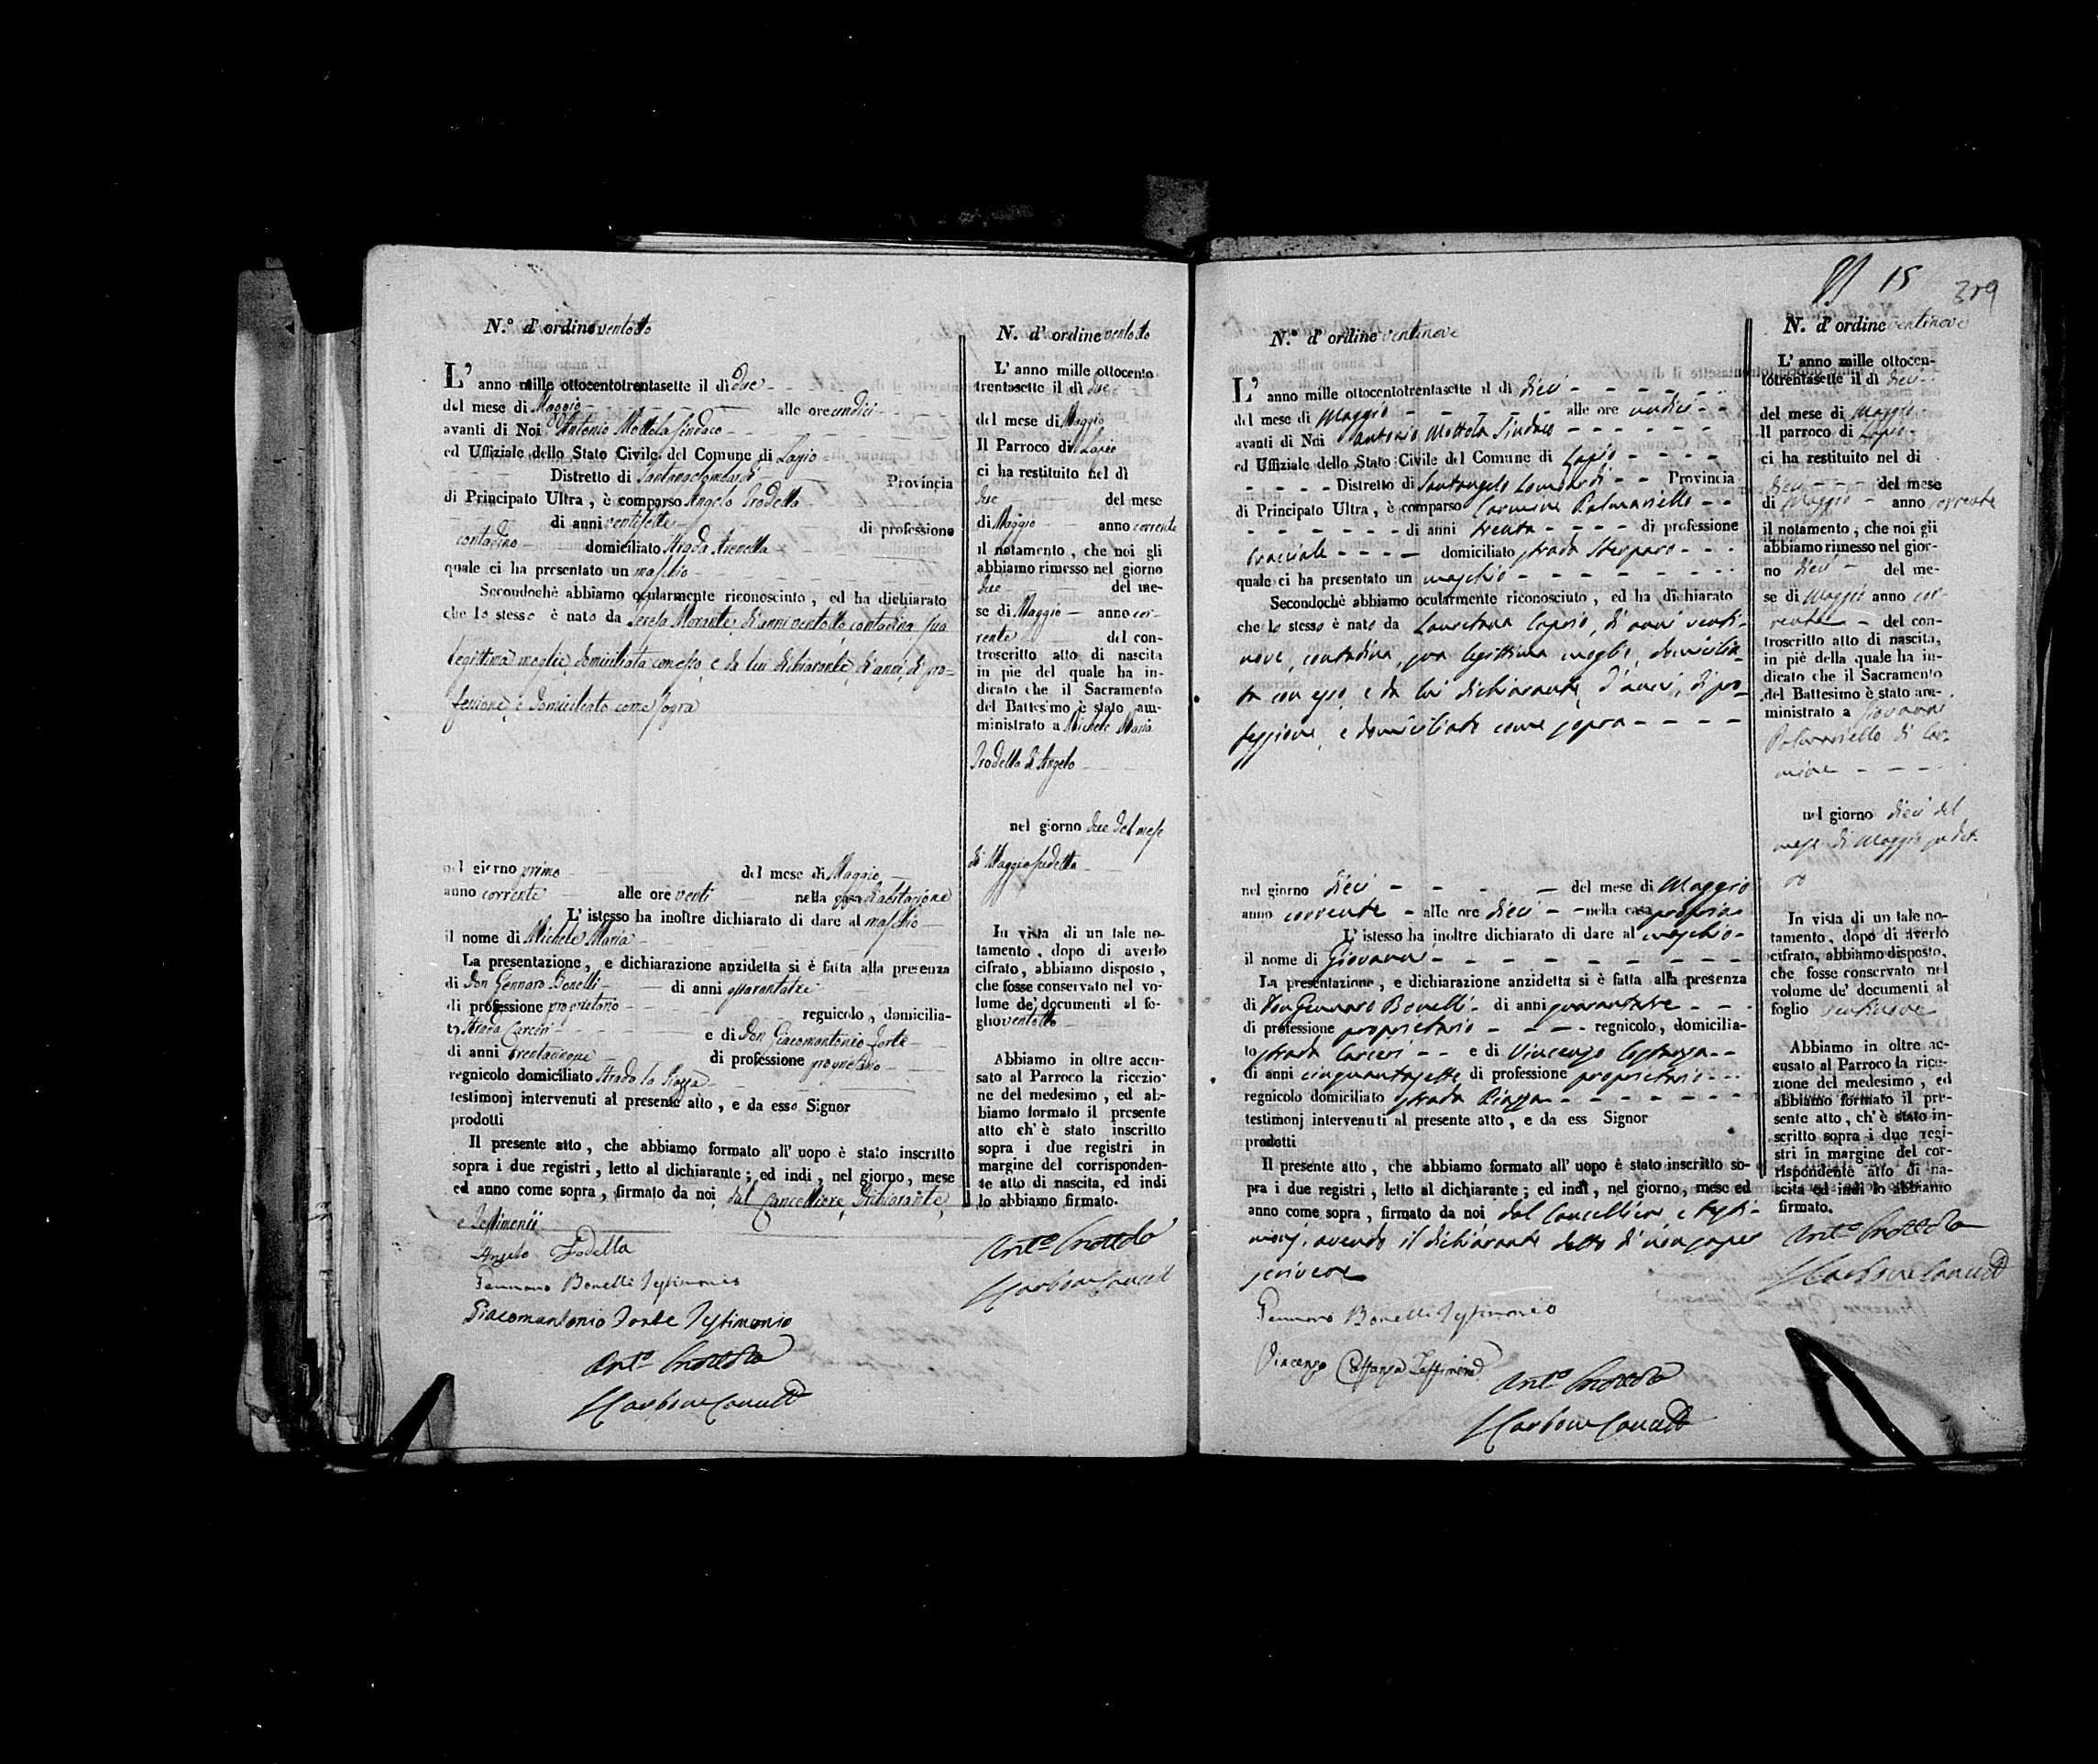 N.° d' ordine ventotto
L' anno mille ottocentotrentasette il dì due
del mese di Maggio alle ore undici
avanti di Noi Antonio Mottola Sindaco
ed Uffiziale dello Stato Civile del Comune di Lapio
Distretto di Santangelombardi Provincia
di Principato Ultra, è comparso Angelo Trodella
di anni ventisette di professione
contadino domiciliato Strada Arenella
quale ci ha presentato un maschio
Secondochè abbiamo ocularmente riconosciuto, ed ha dichiarato
che lo stesso è nato da Teresa Morante, di anni ventotto, contadina sua
legittima moglie, domiciliata con esso, e da lui dichiarante, di anni, di pro-
fessione, e domiciliato come sopra
nel giorno primo del mese di Maggio
anno corrente alle ore venti nella casa d'abitazione
L' istesso ha inoltre dichiarato di dare al maschio
il nome di Michele Maria
La presentazione, e dichiarazione anzidetta si è fatta alla presenza
di Don Gennaro Bonelli di anni quarantatre
di professione proprietario regnicolo, domicilia-
to Strada Carceri e di Don Giacomantonio Forte
di anni trentanove di professione proprietario
regnicolo domiciliato Strada la Piazza
testimonj intervenuti al presente atto, e da esso Signor
prodotti
Il presente atto, che abbiamo formato all' uopo è stato inscritto
sopra i due registri, letto al dichiarante; ed indi, nel giorno, mese
ed anno come sopra, firmato da noi, dal Cancelliere, Dichiarante,
e Testimonii
Angelo Trodella
Gennaro Bonelli Testimonio
Giacomantonio Forte Testimonio
Ant.° Mottola
Carbone Cancell.
N. d' ordine ventotto
L' anno mille ottocento
trentasette il dì due
del mese di Maggio
Il Parroco di Lapio
ci ha restituito nel dì
due del mese
di Maggio anno corrente
il notamento, che noi gli
abbiamo rimesso nel giorno
due del me-
se di Maggio anno cor-
rente del con-
troscritto atto di nascita
in piè del quale ha in-
dicato che il Sacramento
del Battesimo è stato am-
ministrato a Michele Maria
Trodella di Angelo
nel giorno due del mese
di Maggio sudetto
In vista di un tale no-
tamento, dopo di averlo
cifrato, abbiamo disposto,
che fosse conservato nel vo-
lume de' documenti al fo-
glio ventotto
Abbiamo in oltre accu-
sato al Parroco la ricezio-
ne del medesimo, ed ab-
biamo formato il presente
atto ch' è stato inscritto
sopra i due registri in
margine del corrisponden-
te atto di nascita, ed indi
lo abbiamo firmato.
Ant.° Mottola
Carbone Cancell.
15
319
N.° d' ordine ventinove
L' anno mille ottocentotrentasette il dì dieci
del mese di Maggio alle ore undici
avanti di Noi Antonio Mottola Sindaco
ed Uffiziale dello Stato Civile del Comune di Lapio
Distretto di Santangelo Lombardi Provincia
di Principato Ultra, è comparso Carmine Palmariello
di anni trenta di professione
bracciale domiciliato strada Sterparo
quale ci ha presentato un maschio
Secondochè abbiamo ocularmente riconosciuto, ed ha dichiarato
che lo stesso è nato da Lauretana Caprio, di anni venti-
nove, contadina, sua legittima moglie, domicilia-
ta con esso, e da lui dichiarante, d'anni, di pro-
fessione, e domiciliato come sopra
nel giorno dieci del mese di Maggio
anno corrente alle ore dieci nella casa propria
L' istesso ha inoltre dichiarato di dare al maschio
il nome di Giovanni
La presentazione, e dichiarazione anzidetta si è fatta alla presenza
di Don Gennaro Bonelli di anni quarantatre
di professione proprietario regnicolo, domicilia-
to strada Carceri e di Vincenzo Costanza
di anni cinquantasette di professione proprietario
regnicolo domiciliato strada Piazza
testimonj intervenuti al presente atto, e da ess Signor
prodotti
Il presente atto, che abbiamo formato all' uopo è stato inscritto so-
pra i due registri, letto al dichiarante; ed indi, nel giorno, mese ed
anno come sopra, firmato da noi, dal Cancelliere e testi-
monj, avendo il dichiarante detto di non saper
scrivere
Gennaro Bonelli Testimonio
Vincenzo Costanza Testimonio
Ant.° Mottola
Carbone Cancell.
N. d' ordine ventinove
L' anno mille ottocen-
totrentasette il dì dieci
del mese di Maggio
Il parroco di Lapio
ci ha restituito nel dì
dieci del mese
di Maggio anno corrente
il notamento, che noi gli
abbiamo rimesso nel gior-
no dieci del me-
se di Maggio anno cor-
rente del con-
troscritto atto di nascita,
in piè della quale ha in-
dicato che il Sacramento
del Battesimo è stato am-
ministrato a Giovanni
Palmariello di Car-
mine
nel giorno dieci del
mese di Maggio sudet-
to
In vista di un tale no-
tamento, dopo di averlo
cifrato, abbiamo disposto,
che fosse conservato nel
volume de' documenti al
foglio ventinove
Abbiamo in oltre ac-
cusato al Parroco la rice-
zione del medesimo, ed
abbiamo formato il pre-
sente atto, ch' è stato in-
scritto sopra i due regi-
stri in margine del cor-
rispondente atto di na-
scita ed indi lo abbiamo
firmato.
Ant.° Mottola
Carbone Cancell.